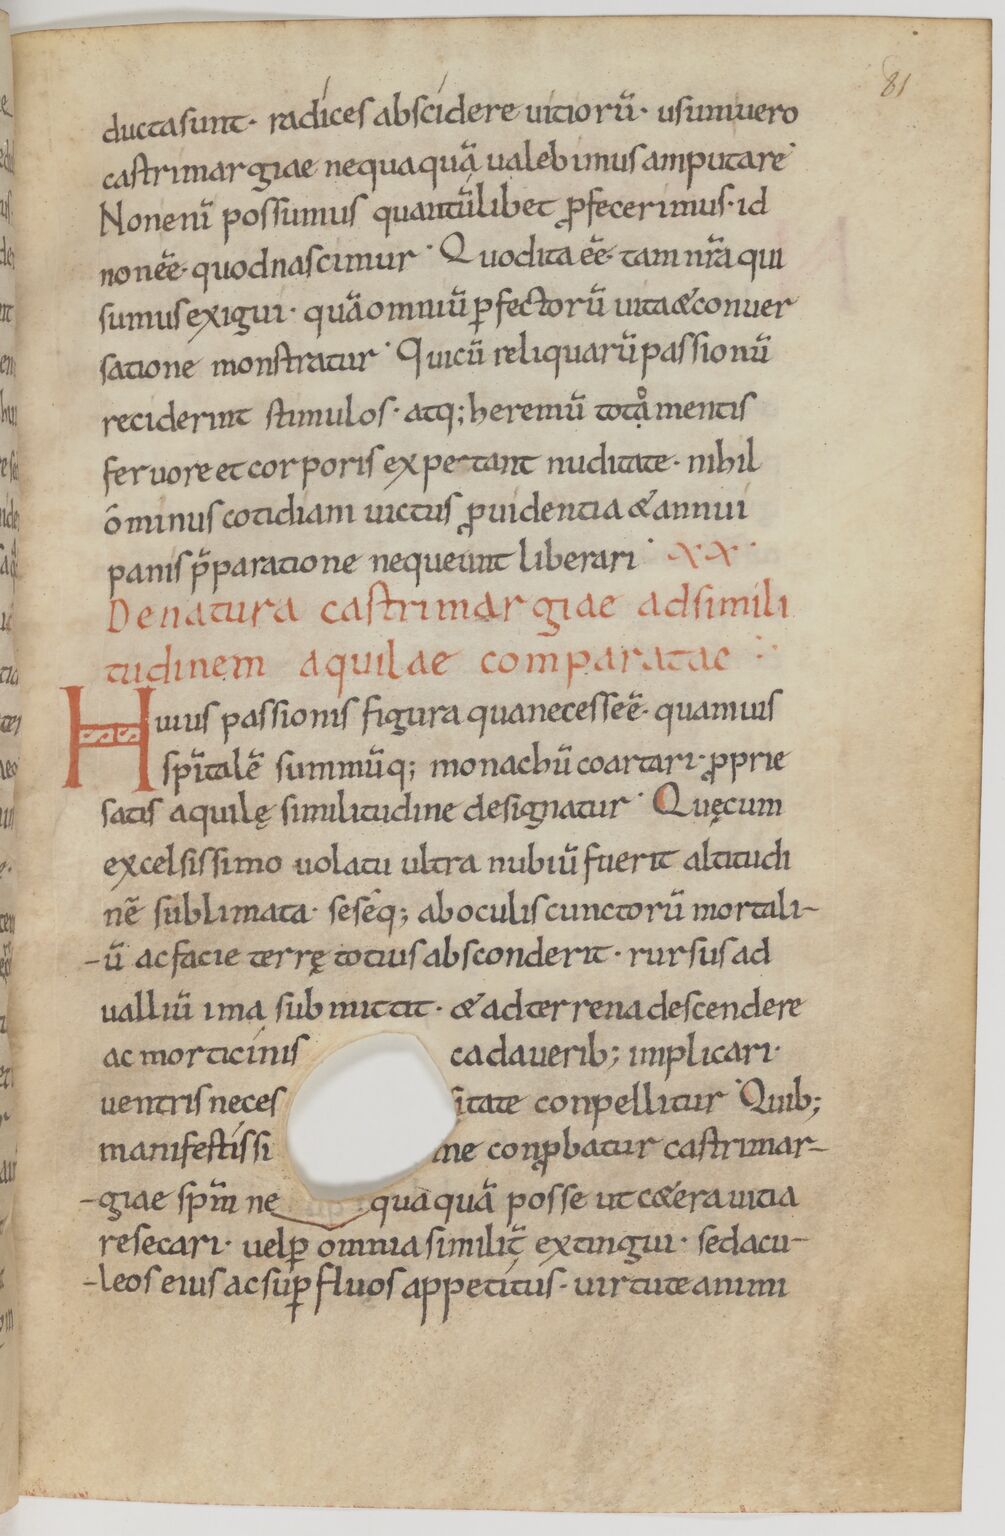 81
ductasunt· radíces abscídere uitiorū· usumuero
castrimargiae nequaquā ualebimusamputare·
Nonenī possumus quantūlibet ꝓfecerimus· id
nonēē· quodnascimur· Quodita ēē· tam nr̄a qui
sumusexigui· quāomniū ꝑfectorū uita&conuer
satione monstratur· Quicū reliquarū passionū
reciderint stimulos· atq; heremū mentis
feruore et corporis expetant nuditate· nihil
ōminus cotidiani uictus ꝓuidentia & annui
panis p̄paratione nequeunt liberari· XX·
Denatura castrimargiae adsimili
tudinem aquilae comparatae
Huius passionis figura quanecesseē· quamuis
sp̄italē summūq; monachū coartari· ꝓprie
satis aquilę similitudine designatur· Quęcum
excelsissimo uolatu ultra nubiū fuerit altitudi
nē sublimata· sesēq; aboculis cunctorū mortali-
-ū acfacie terrę totius absconderit· rursus ad
ualliū ima submittit· & adterrena descendere
ac morticínis cadauerib; implicari·
uentris neces sitate conpellitur· Quib;
manifestíssi me conꝓbatur castrimar-
-giae sp̄m ne quaquā posse ut c&era uitia
resecari· uelꝑ omnia similit̄ extingui· sedacu-
-leos eius ac suꝑfluos appetítus· uirtute animi